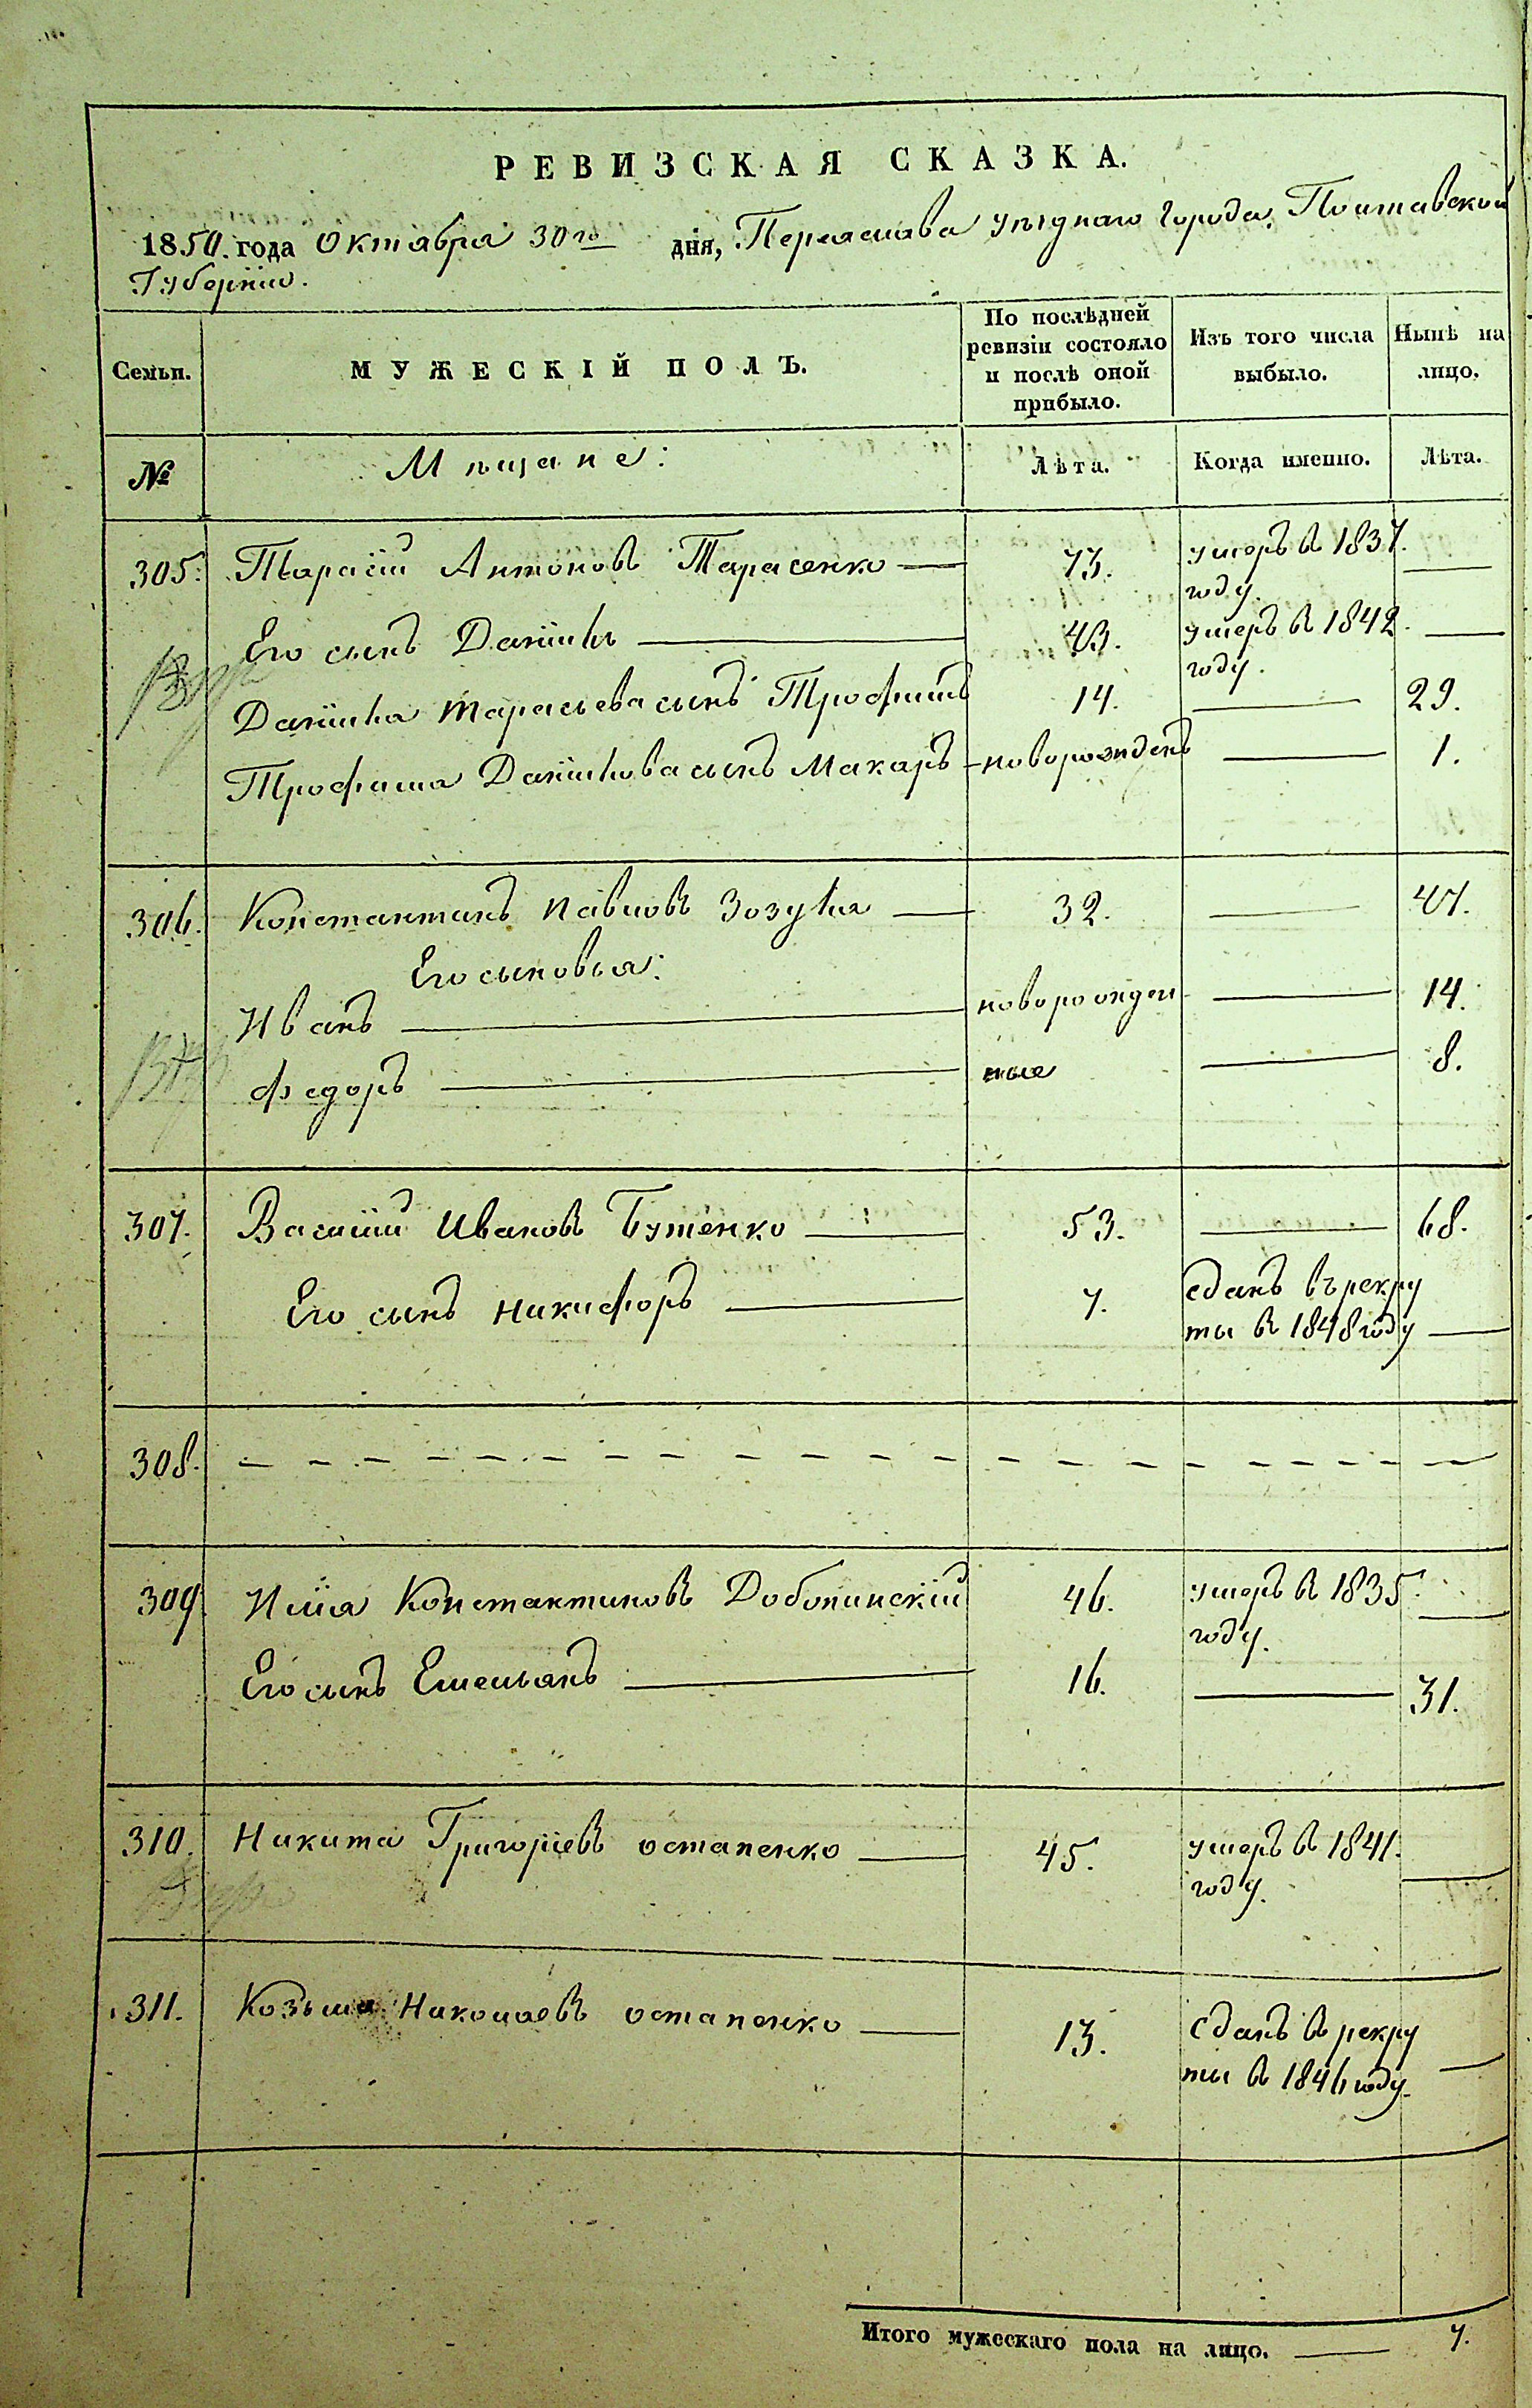 РЕВИЗСКАЯ СКАЗКА.
1850. года Октября 30го дня, Переяслава уѣзднаго города, Полтавской
Губерніи.
Семьи.
МУЖЕСКІЙ ПОЛЪ.
По послѣдней
ревизіи состояло
и послѣ оной
прибыло.
Изъ того числа
выбыло.
Нынѣ на
лицо.
№
Мѣщане:
Лѣта.
Когда именно.
Лѣта.
305. Тарасій Антоновъ Тарасенко 73. умеръ въ 1837.
году.
Его сынъ Даніилъ 43. умеръ въ 1842.
году.
Даніила Тарасьева сынъ Трофимъ 14. 29.
Трофима Даніилова сынъ Макаръ новорожденъ 1.
306. Константинъ Павловъ Зозуля 32. 47.
Его сыновья:
Иванъ новорожден 14.
Федоръ ные 8.
307. Василій Ивановъ Бутенко 53. 68.
Его сынъ Никифоръ 7. сданъ въ рекру
ты въ 1848 году
308.
309. Илія Константиновъ Доболинскій 46. умеръ въ 1835.
году.
Его сынъ Емельянъ 16. 31.
310. Никита Григоріевъ Остапенко 45. умеръ въ 1841.
году.
311. Козьма Николаевъ Остапенко 13. Сданъ въ рекру
ты въ 1846 году.
Итого мужескаго пола на лицо. 7.